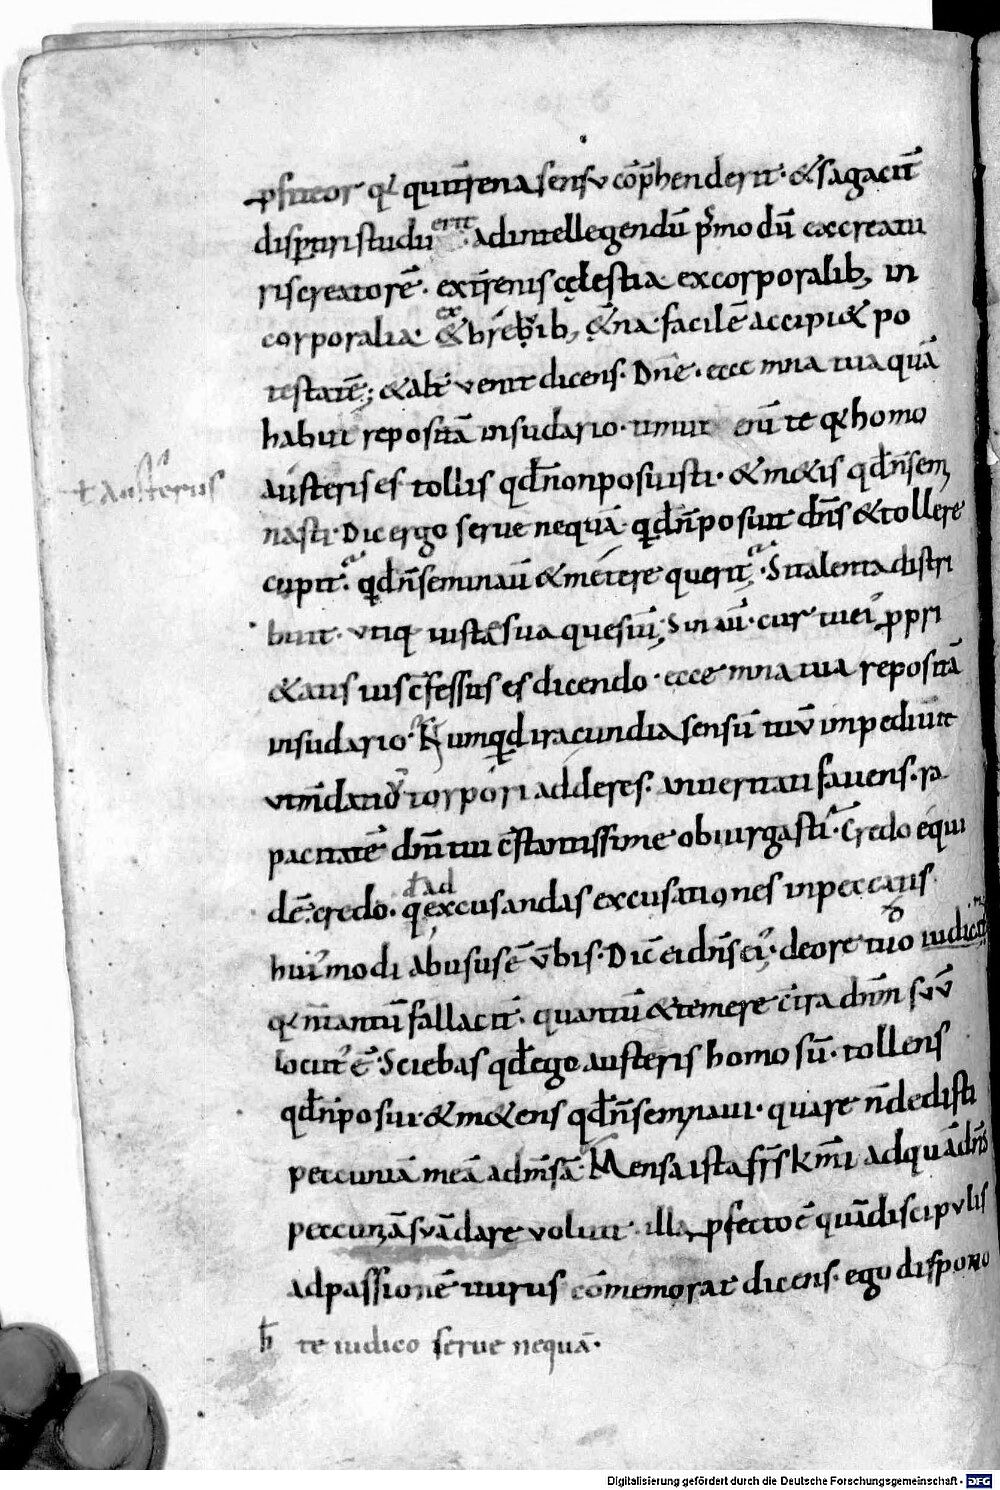 ꝓfiteor qꝛ qui tr̄ena sensu cōp̄henderit· & sagacit̄
disputari studu erit · ad intellegendū p̄mo dū ex creatu
ris creatorē· ex tr̄enis cęlestia ex corporalib; in
corporalia· ex
& brēbib; &̄na· facilē accipi& po
testatē; & alt̄ venit dicens· Dn̄e· ecce mna tua quā
habui repositā in sudario· timui enī te qꝛ homo
austeris es tollis qđ non posuisti· & m&is qđ n̄ semi
ł austerus
nasti· Dic ergo serue nequā· qđ n̄ posuit dn̄s & tollere
cupit· qđ n̄ seminauit & metere querit· Si talenta distri
buit· utiq iusta sua quesiuit; Sin aut̄· cur tuei ꝓpri
&atis ius cf̄essus es dicendo· ecce mna tua reposita
in sudario· Numqđ iracundia sensū tuū impediuit
ut mdatio torpori adderes· an ueritati fauens· ra
pacitatē dn̄i tui cs̄tantissime obiurgasti· Credo equi
dē credo· q
ł ad
excusandas excusationes in peccatis
huiꝰmodi abusus ē ūbis· Dic̄ ei dn̄s eiꝰ· de ore tuo iudico
qꝛ n̄ tantū fallacit̄· quantū & temere cīra dn̄m suū
locutꝰ ē· Sciebas qđ ego austeris homo sū· tollens
qđ n̄ posui & m&ens qđ n̄ seminaui· quare n̄ dedisti
peccuniā meā ad mēsā· Mensa ista frs̄ kmi ad quā dn̄s
peccuniā suā dare voluit· illa ꝓfecto ē quā discipulis
ad passionē iturus cōmemorat dicens· ego dispono
h̄ te iudico serue nequā·
Digitalisierung gefördert durch die Deutsche Forschungsgemeinschaft - DFG